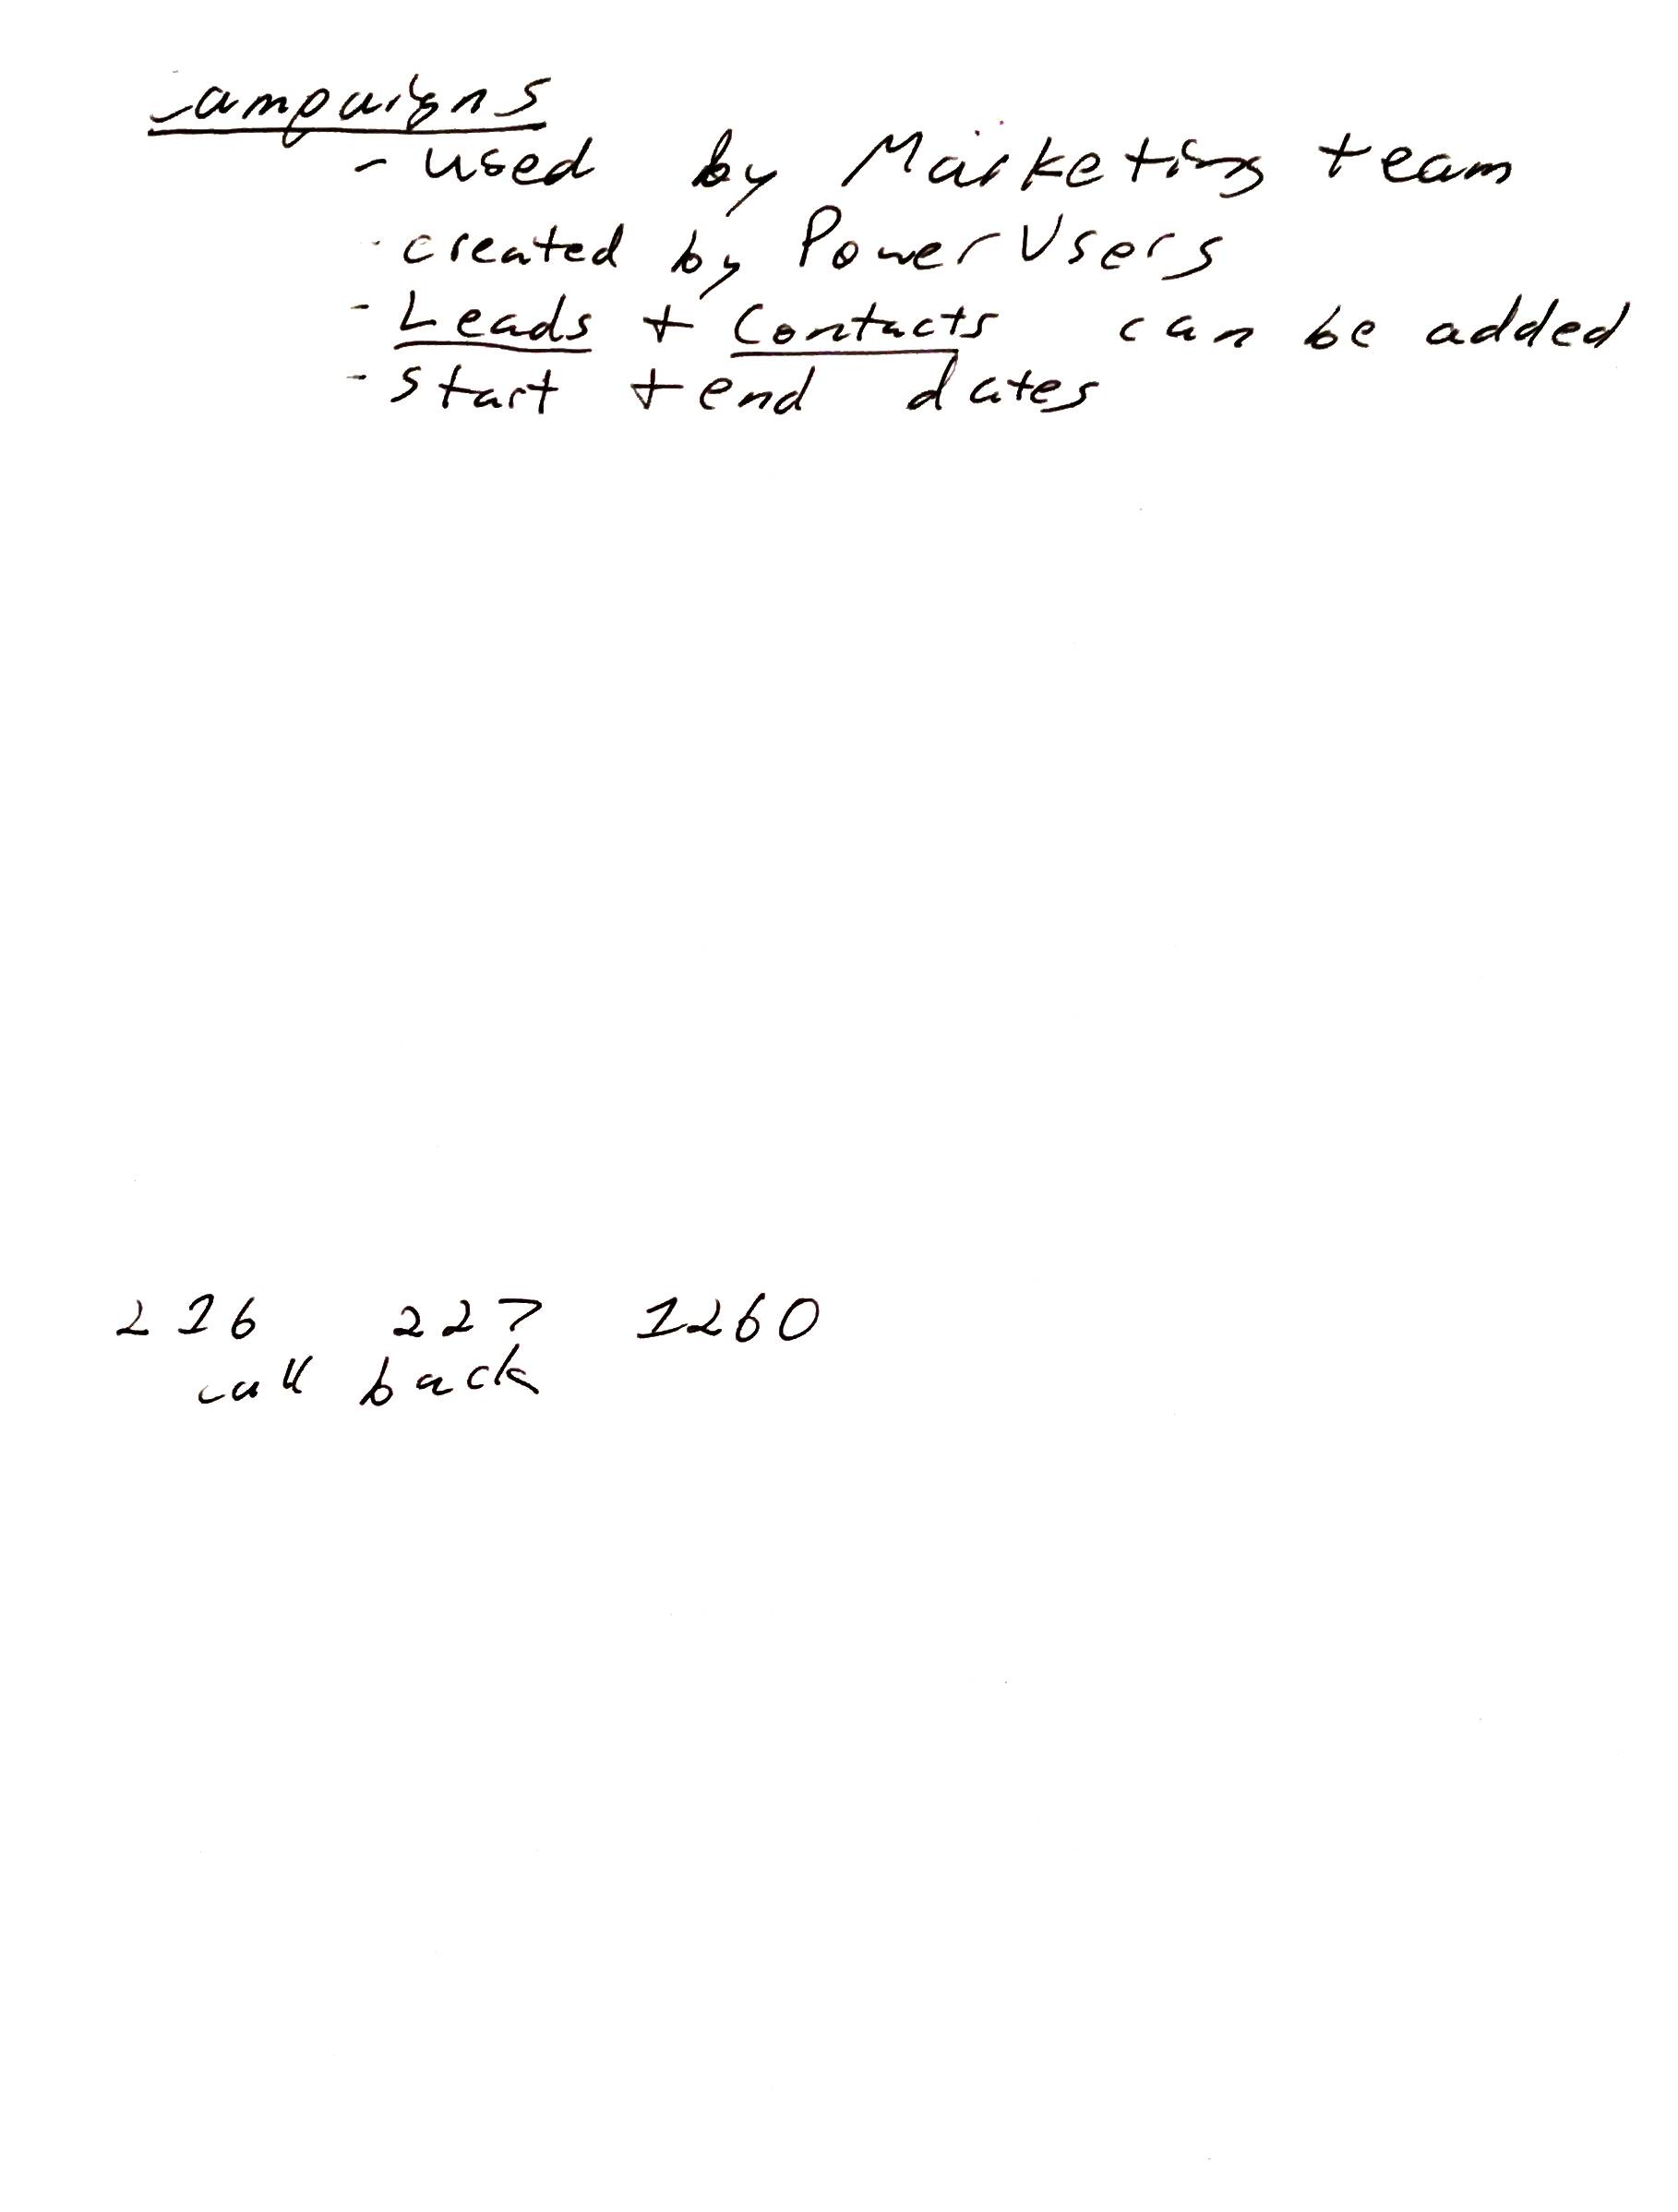 Campaigns
- used by Marketing team
- created by Power Users
- Leads + Contacts can be added
- Start + end dates
226 227 1260
call back